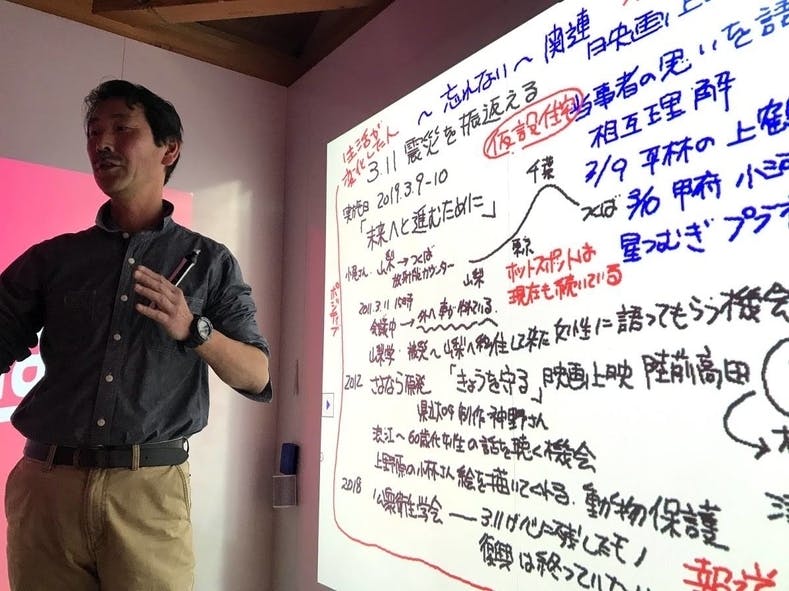 ～忘れない～ 関連
日映画上
生活が
変化した人
3.11 震災を振返える
仮設住宅
当事者の思いを語
相互理解
2/9 平林の上
3/10 甲府 小
星つむぎ プラ
実施日 2019.3.9-10
「未来へと進むために」
千葉
つくば
東京
山梨
小尾さん 山梨→つくば
放射能カウンター
ホットスポットは
現在も続いている
ポジティブ
2011.3.11 15時
会議中→外へ 車が揺れている
山梨学 被災へ山梨へ移住して来た女性に語ってもらう機会
2012 さよなら原発 「きょうを守る」映画上映 陸前高田
県立大の時 制作 神野さん
浪江～60歳代女性の話を聴く機会
上野原の小林さん 絵を描いてくれる. 動物保護
2018 公衆衛生学会 ― 3.11が心に残したモノ
復興は終っていない
報道